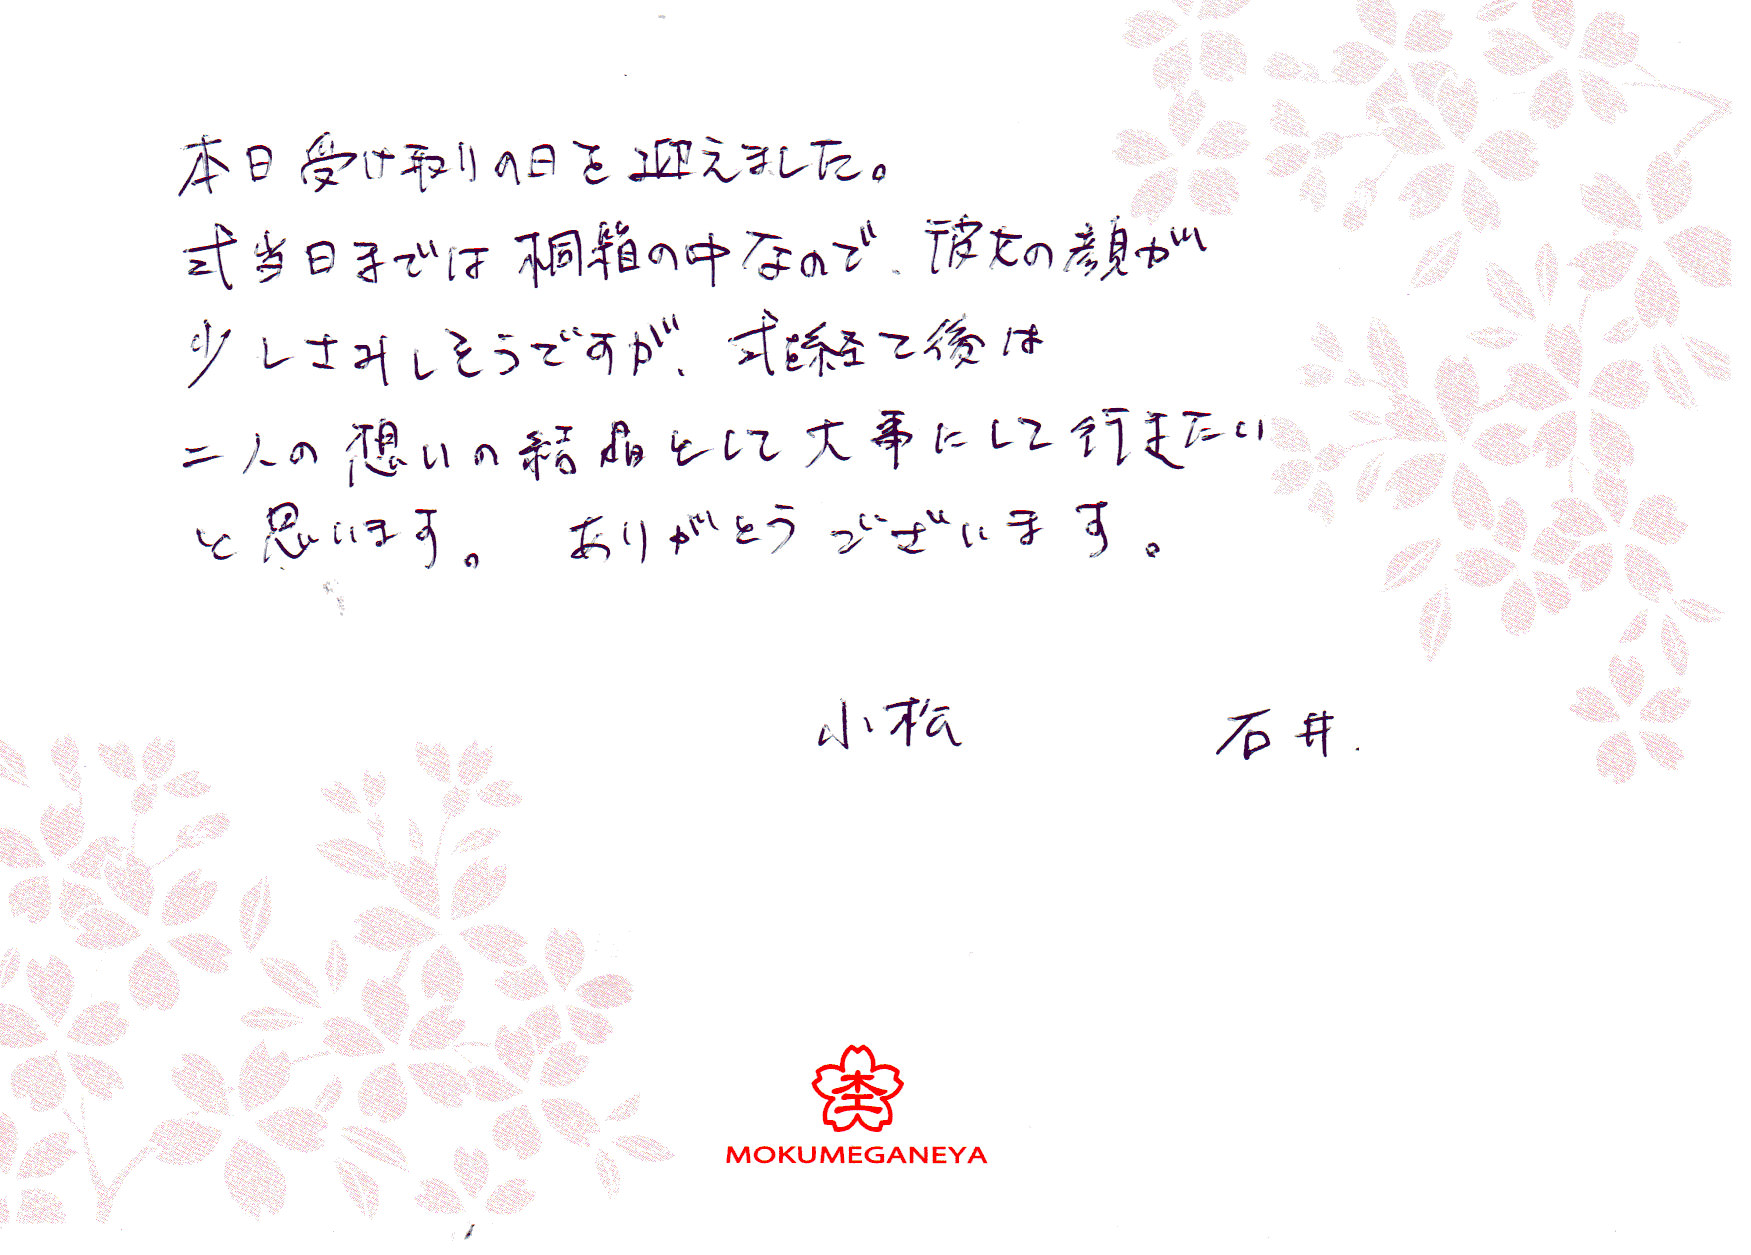 本日受け取りの日を迎えました。
式当日までは桐箱の中なので、彼女の顔が
少しさみしそうですが、式を経て後は
二人の想いの結晶として大事にして行きたい
と思います。 ありがとうございます。
小松 石井.
MOKUMEGANEYA